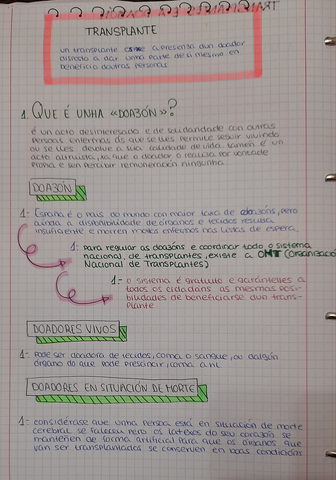 TRANSPLANTE
un transplante esixe a presenza dun doador
disposto a dar unha parte de si mesmo en
beneficio doutras persoas
1. QUE É UNHA «DOAZÓN»?
é un acto desinteresado e de solidaridade con outras
persoas enfermas ás que se lles permite seguir vivindo
ou se lles devolve a súa calidade de vida. tamén é un
acto altruista, xa que o doador o realiza por vontade
propia e sen percibir remuneración ningunha.
DOAZÓN
1- España é o país do mundo con maior taxa de doazóns, pero
aínda a dispoñibilidade de órganos e tecidos resulta
insuficiente e morren moitos enfermos nas listas de espera.
1: para regular as doazóns e coordinar todo o sistema
nacional de transplantes, existe a ONT (Organización
Nacional de Transplantes)
1- o sistema é gratuito e garántelles a
todos os cidadáns as mesmas posi-
bilidades de beneficiarse dun trans-
plante
DOADORES VIVOS
1- pode ser doadora de tecidos, coma o sangue, ou dalgún
órgano do que pode prescindir, coma o ril
DOADORES EN SITUACIÓN DE MORTE
1- considérase que unha persoa está en situación de morte
cerebral se faleceu pero os latexos do seu corazón se
manteñen de forma artificial para que os órganos que
van ser transplantados se conserven en boas condicións